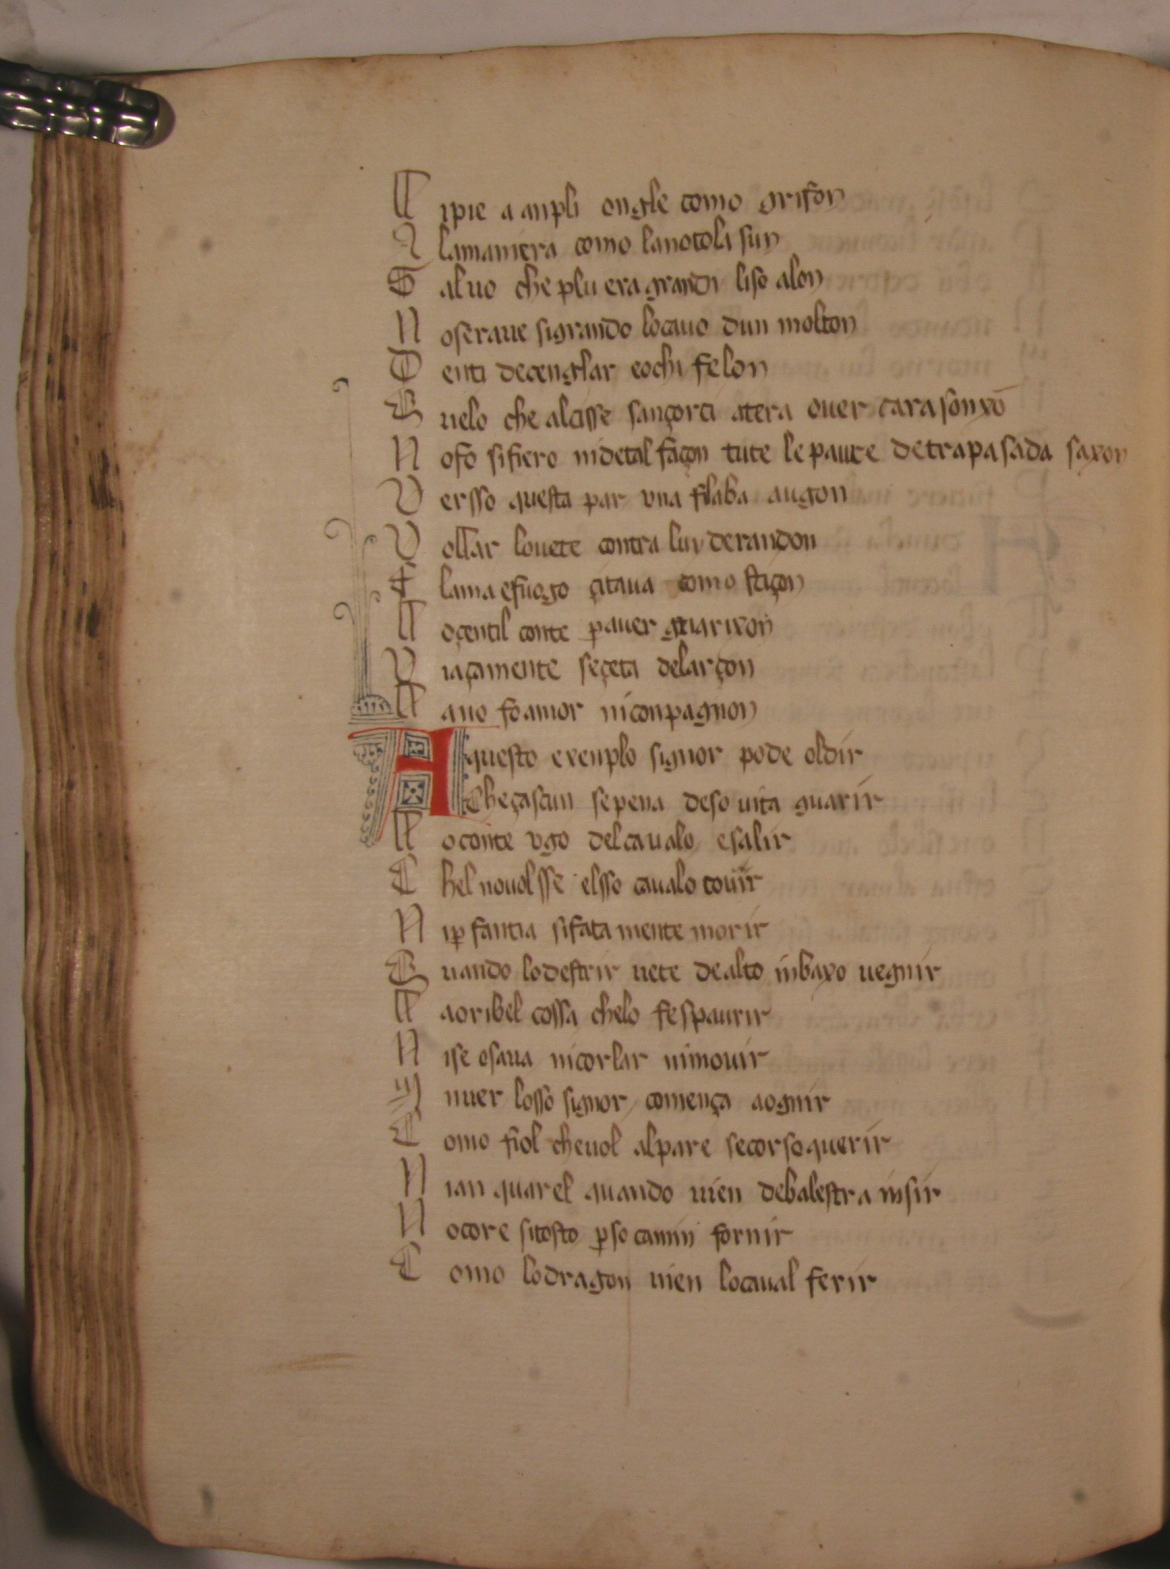 L ipie a anpli ongle como grifon
A lamaniera como lanotola sun
S aluo che plu era grandi liso alon
N oseraue sigrando locauo dun molton
D enti decenglar eochi felon
Q uelo che alcisse sançorci atera ouer cara son xō
N ofo sifiero nidetal façon tute le paure detrapasada saxon
V ersso questa par una filaba augon
V ollar louete contra luy derandon
F lama efuogo çitaua como stiçon
L oçentil conte p auer guarixon
V iaçamente seçeta delarçon
L ano fo amor niconpagnon
A questo exenplo signor pode oldir
Cheçascun sepena deso uita guarir
L oconte vgo delcaualo esalir
C hel nouolsse elsso caualo touir
N ip fantia sifata mente morir
Q uando lodestrir uete dealto inbaxo uegnir
L aoribel cossa chelo fespaurir
N ise osaua nicorlar nimouir
I nuer losso signor començа aognir
C omo fiol cheuol alpare secorso querir
N ian quarel quando uien debalestra insir
N ocore sitosto pso camin fornir
C omo lodragon uien locaual ferir